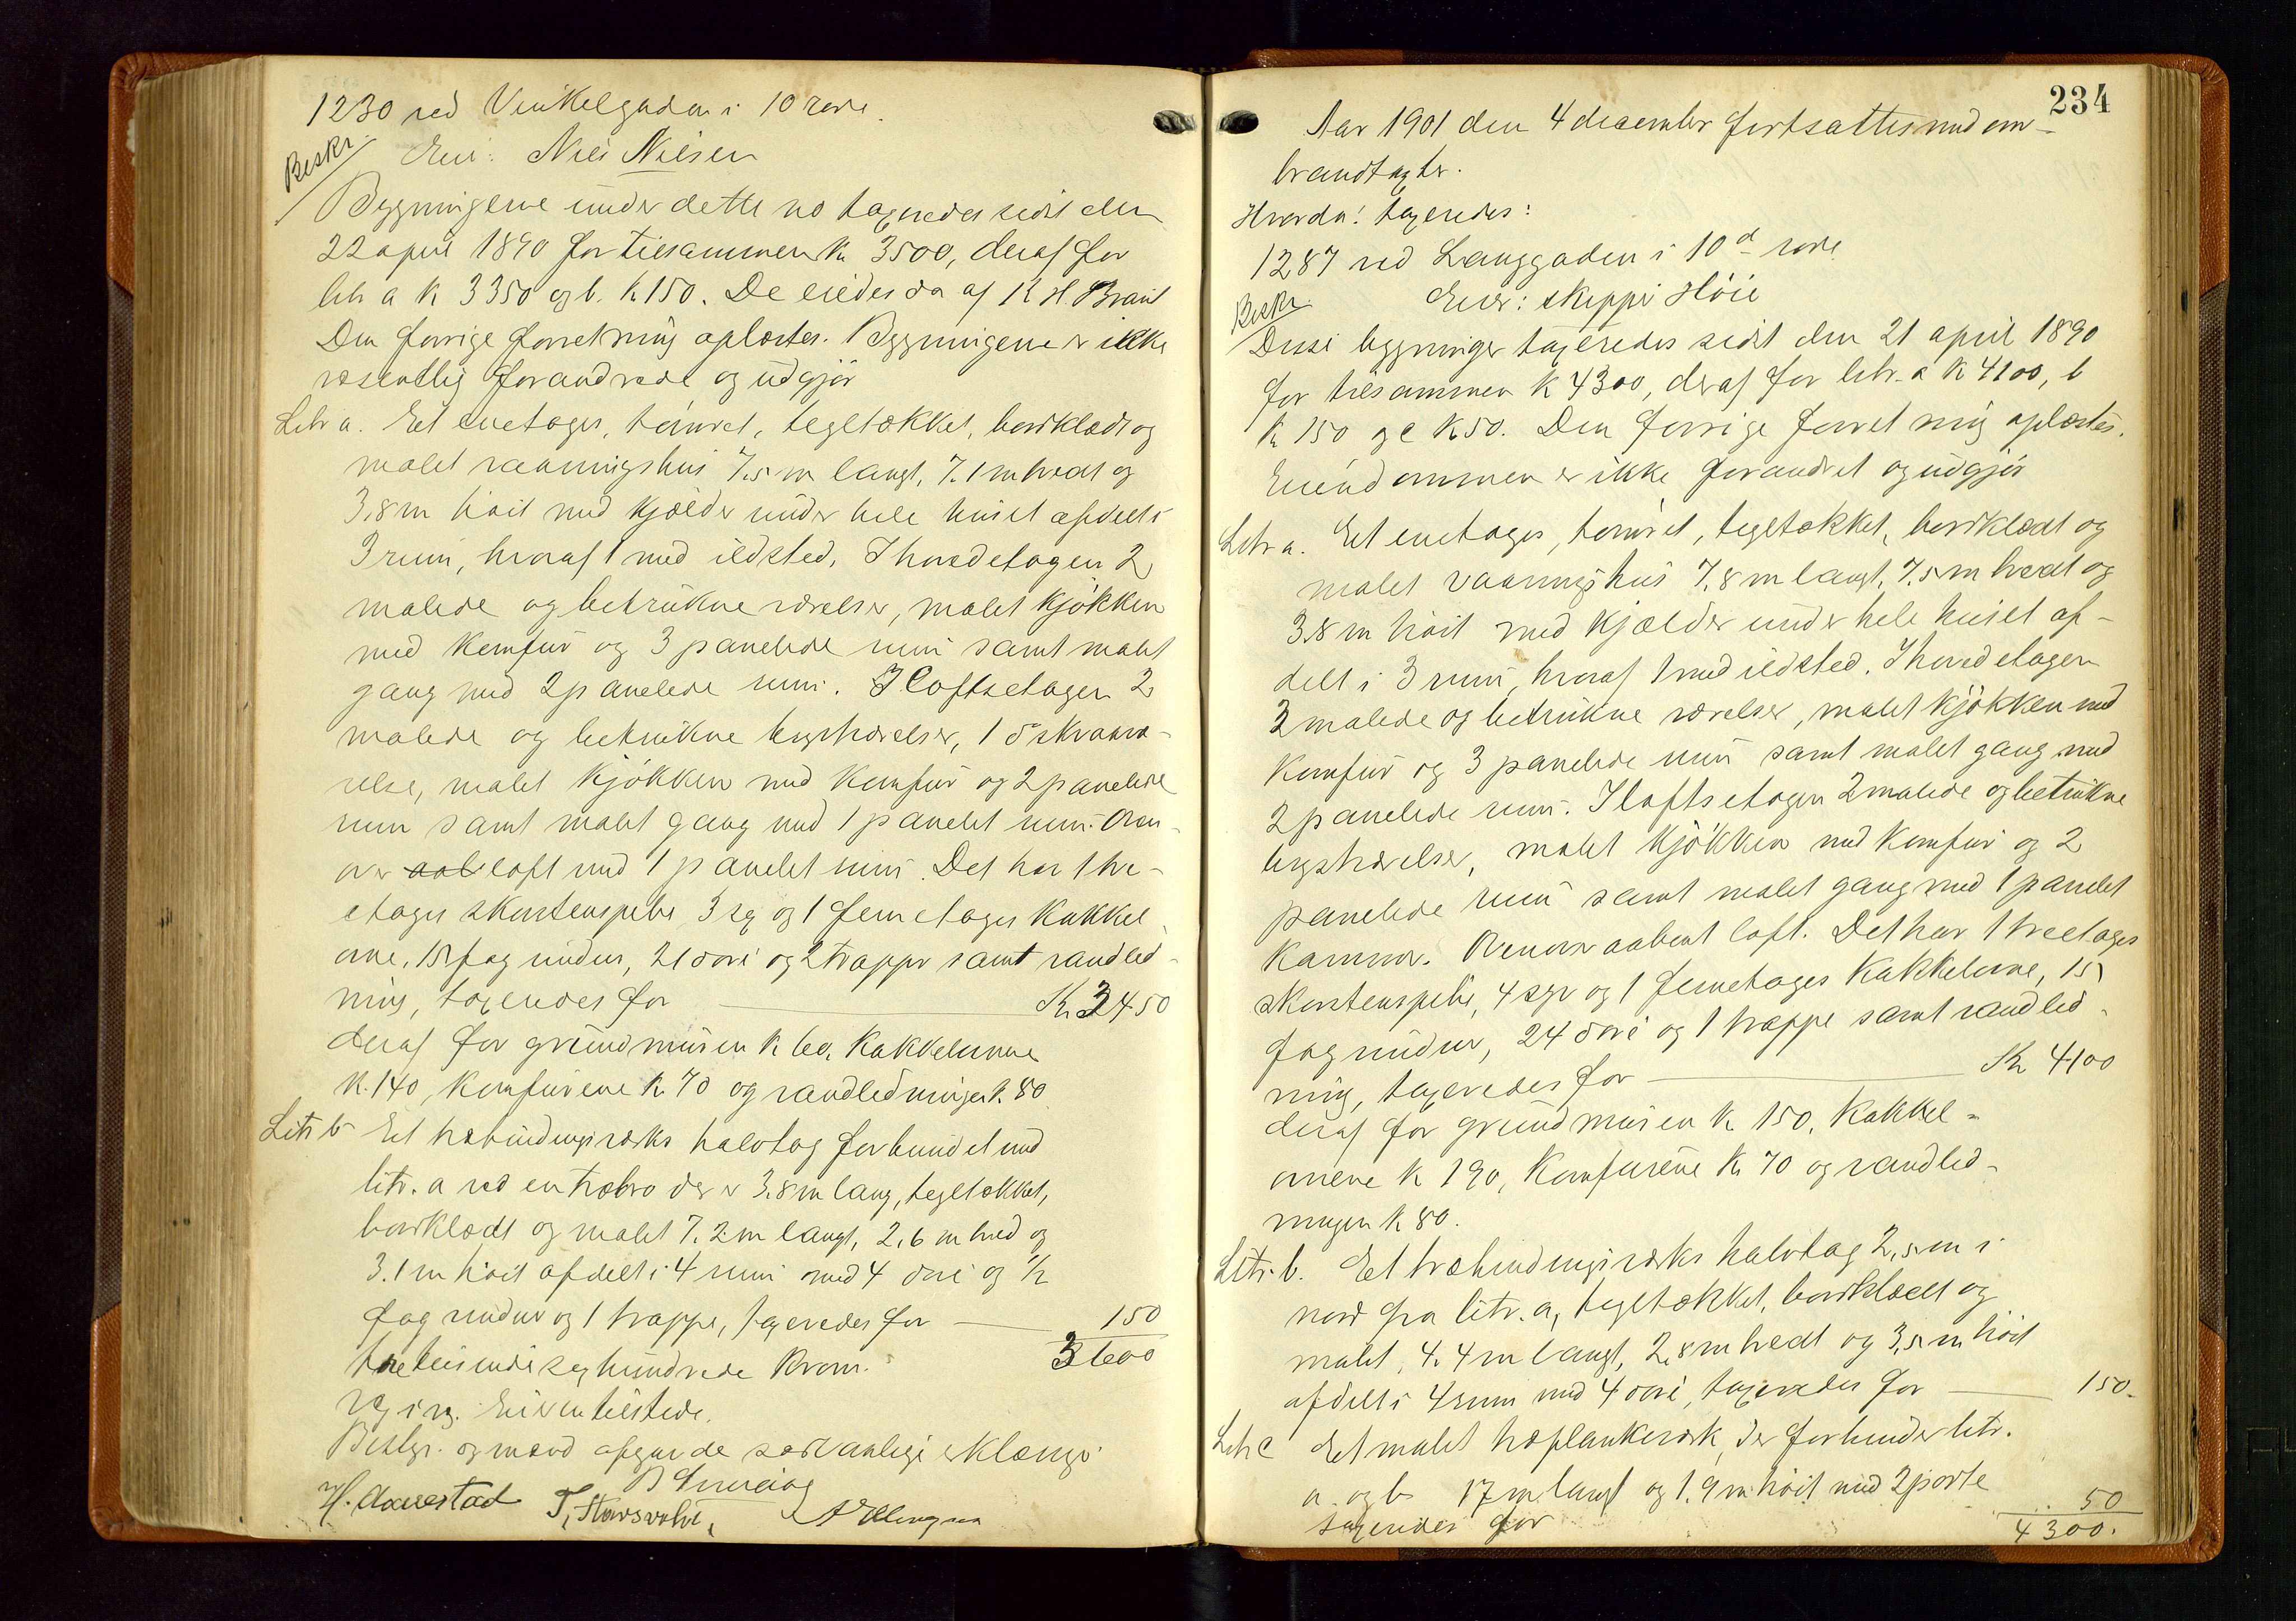 1230 ved Vinkelgaden i 10 rode.
Beskr.
Eier: Niels Nilsen
Bygningerne under dette no taxeredes sidst den
22 april 1890 for tilsammen k 3500, deraf for
litr a k 3350 og b. k 150. De eiedes da af K H.
Den forrige forretning oplæstes. Bygningerne er ikke
væsentlig forandrede og udgjør
Litr a. Et enetages, tømret, tegltækket, bordklædt og
malet vaaningshus 7.5 m langt, 7.1 m bredt og
3.8 m høit med kjælder under hele huset afdelt i
3 rum, hvoraf 1 med ildsted. I hovedetagen 2
malede og betrukne værelser, malet kjøkken
med komfur og 3 panelede rum samt malet
gang med 2 panelede rum. I loftsetagen 2
malede og betrukne kvistværelser, 1 do skraavæ-
relse, malet kjøkken med komfur og 2 panelede
rum samt malet gang med 1 panelet rum. Oven-
over aab loft med 1 panelet rum. Det har 1 tre-
etages skorstenspibe, 3 og 1 femetages kakkel-
ovne, fag vinduer, 21 døre og 2 trapper samt vandled-
ning, taxeredes for K 3450
deraf for grundmuren k 60, kakkelovnene
k. 140, komfurene k 70 og vandledningen k. 80
Litr b Et træbindingsværks halvtag forbundet med
litr. a ved en træbro der er 3.8 m lang, tegltækket,
bordklædt og malet 7.2 m langt, 2.6 m bred og
3.1 m høit afdelt i 4 rum med 4 døre og 1/2
fag vinduer og 1 trappe, taxeredes for 150
tretusinde sexhundrede kroner. 3600
Eieren tilstede.
Bestyr. og mænd afgav de sædvanlige erklæringer
H. Aarrestad

234
Aar 1901 den 4 december fortsattes med om-
brandtaxter.
Hvorda! taxeredes:
1287 ved Langgaden i 10d rode
Beskr.
Eier: skipper Høie
Disse bygninger taxeredes sidst den 21 april 1890
for tilsammen k 4300, deraf for litr. a k 4100, b
k 150 og c k 50. Den forrige forretning oplæstes.
Eiendommen er ikke forandret og udgjør
Litr a. Et enetages, tømret, tegltækket, bordklædt og
malet vaaningshus 7.8 m langt, 7.5 m bredt og
3.8 m høit med kjælder under hele huset af-
delt i 3 rum, hvoraf 1 med ildsted. I hovedetagen
3 malede og betrukne værelser, malet kjøkken med
komfur og 3 panelede rum samt malet gang med
2 panelede rum. I loftsetagen 2 malede og betrukne
kvistværelser, malet kjøkken med komfur og 2
panelede rum samt malet gang med 1 panelet
kammer. Ovenover aabent loft. Det har 1 treetages
skorstenspibe, 4 og 1 femetages kakkelovne, 15
fag vinduer, 24 døre og 1 trappe samt vandled-
ning, taxeredes for K 4100
deraf for grundmuren k. 150, kakkel-
ovnene k 190, komfurene k 70 og vandled-
ningen k 80.
Litr. b. Et træbindingsværks halvtag 2.5 m i
nord fra litr. a, tegltækket, bordklædt og
malet, 4.4 m langt, 2.8 m bredt og 3.5 m høit
afdelt i 4 rum med 4 døre, taxeredes for 150.
Litr c Et malet træplankeværk, der forbinder litr.
a og b 17 m. langt og 1.9 m høit med 2 porte
taxeredes for 50
4300.